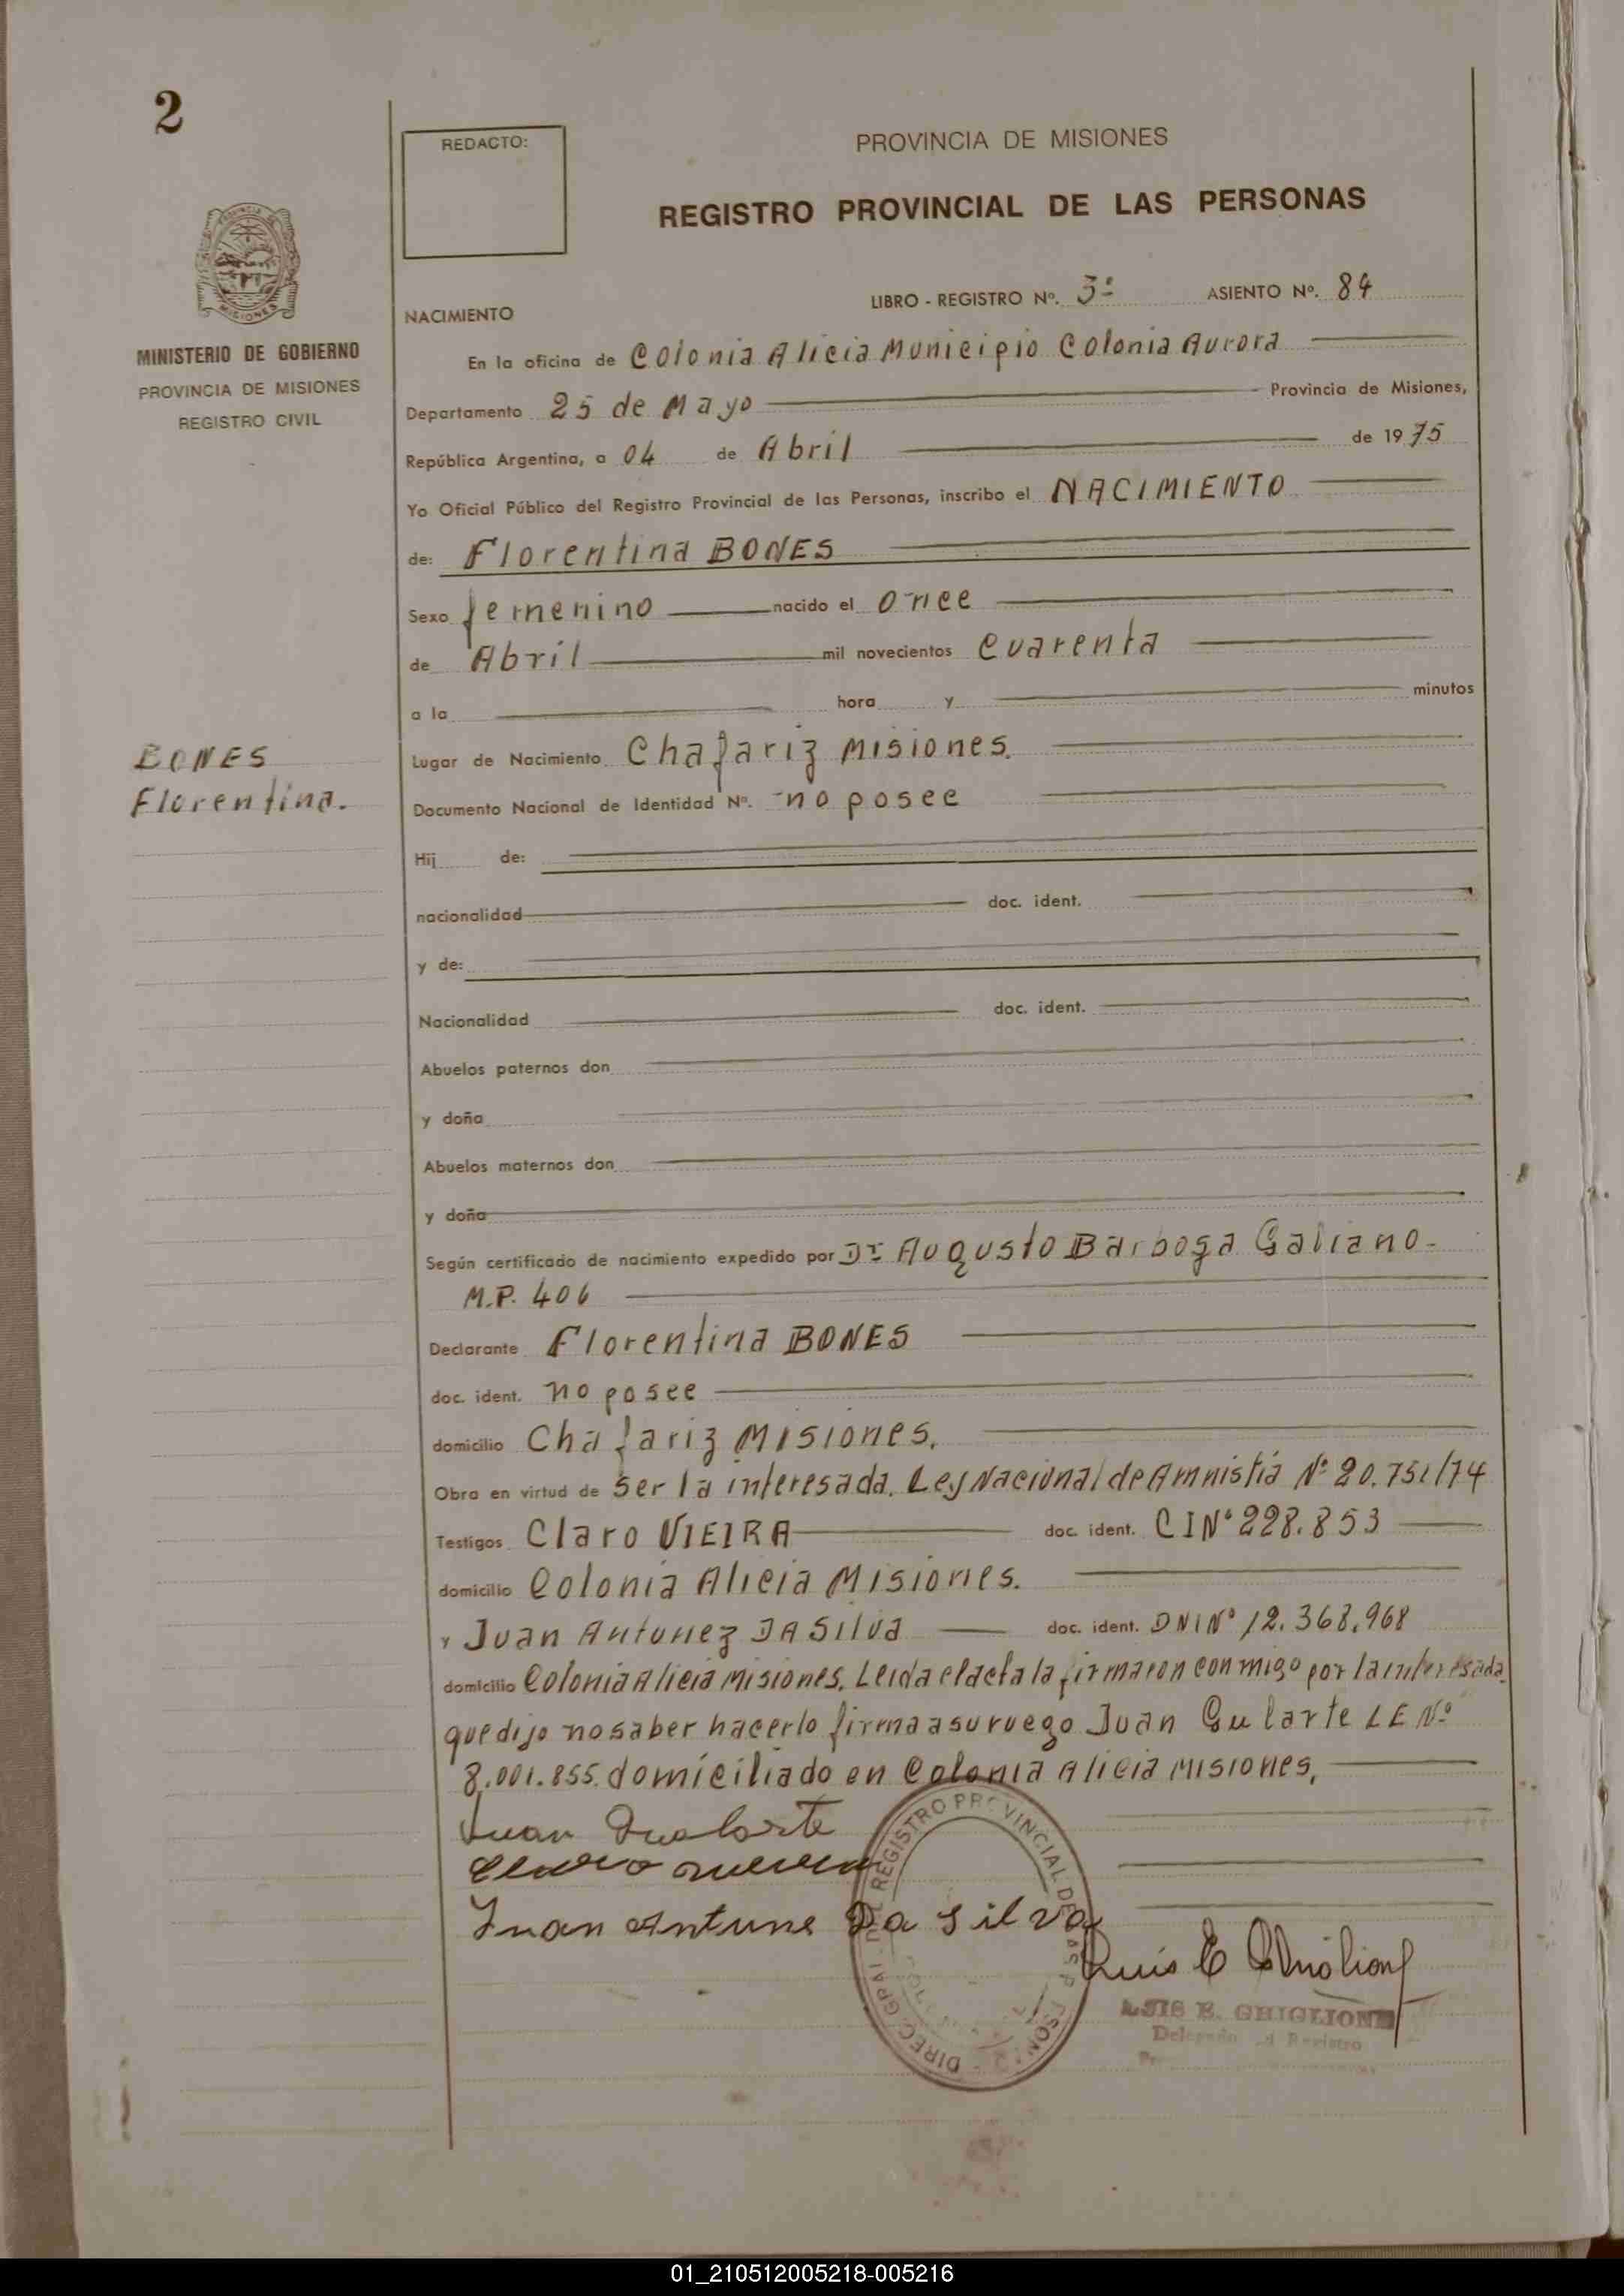 2
REDACTO:
PROVINCIA DE MISIONES
REGISTRO PROVINCIAL DE LAS PERSONAS
MINISTERIO DE GOBIERNO
PROVINCIA DE MISIONES
REGISTRO CIVIL
LIBRO - REGISTRO Nº. 3º ASIENTO Nº. 84
NACIMIENTO
En la oficina de Colonia Alicia Municipio Colonia Aurora
Departamento 25 de Mayo Provincia de Misiones,
República Argentina, a 04 de Abril de 1975
Yo Oficial Público del Registro Provincial de las Personas, inscribo el NACIMIENTO
de: Florentina BONES
Sexo femenino nacido el once
de Abril mil novecientos cuarenta
a la hora y minutos
BONES
Florentina.
Lugar de Nacimiento Chafariz Misiones.
Documento Nacional de Identidad Nº. no posee
Hij de:
nacionalidad doc. ident.
y de:
Nacionalidad doc. ident.
Abuelos paternos don
y doña
Abuelos maternos don
y doña
Según certificado de nacimiento expedido por Dr. Augusto Barboza Galiano-
M.P. 406
Declarante Florentina BONES
doc. ident. no posee
domicilio Chafariz Misiones.
Obra en virtud de ser la interesada. Ley Nacional de Amnistía Nº 20.751/74
Testigos Claro VIEIRA doc. ident. CI Nº 228.853
domicilio Colonia Alicia Misiones.
y Juan Antunez DA Silva doc. ident. DNI Nº 12.368.968
domicilio Colonia Alicia Misiones. Leida el acta la firmaron con migo por la interesada
que dijo no saber hacerlo firma a su ruego Juan Gularte LE Nº
8.001.855 domiciliado en Colonia Alicia Misiones.
Juan
Juan Antune Da Silva
DIREC. GRAL. DEL REGISTRO PROVINCIAL DE LAS PERSONAS
Luis E Ghiglione
LUIS E. GHIGLIONE
Delegado del Registro
01_210512005218-005216